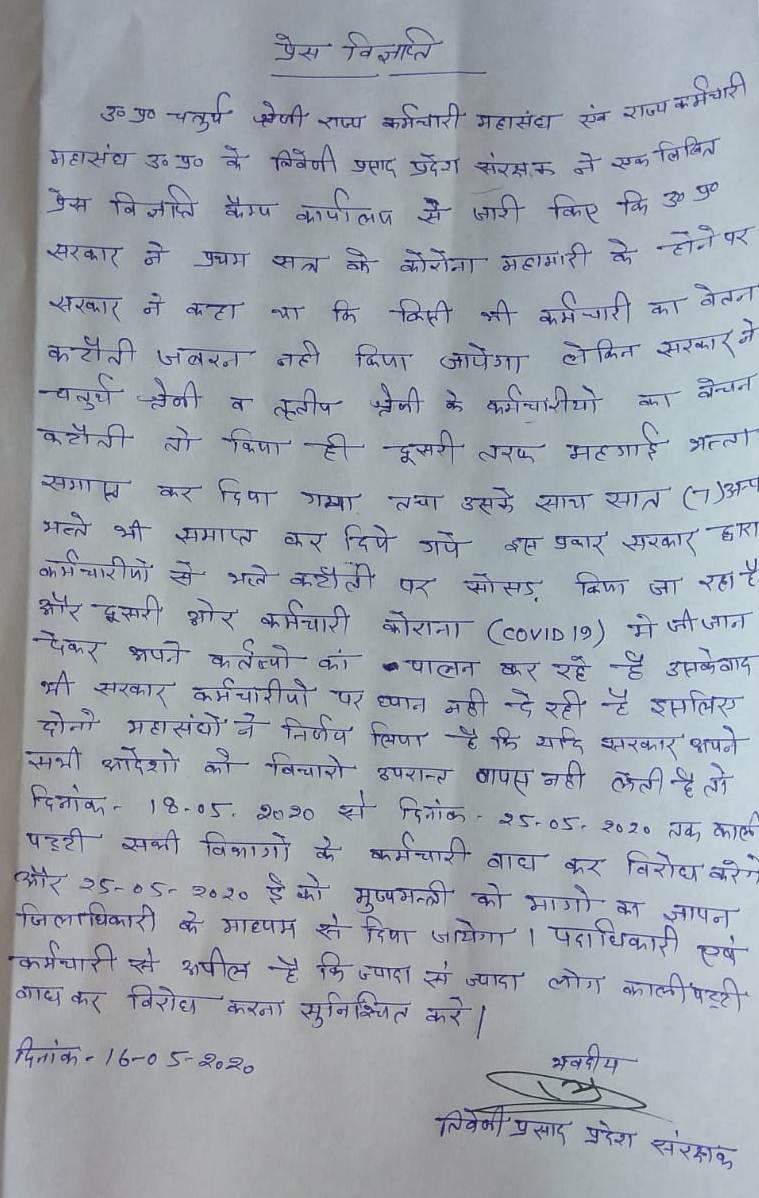 प्रेस विज्ञप्ति
उ० प्र० चतुर्थ श्रेणी राज्य कर्मचारी महासंघ एंव राज्य कर्मचारी
महासंघ उ० प्र० के त्रिवेणी प्रसाद प्रदेश संरक्षक ने एक लिखित
प्रेस विज्ञप्ति कैम्प कार्यालय से जारी किए कि उ० प्र०
सरकार ने प्रथम सत्र के कोरोना महामारी के होने पर
सरकार ने कहा था कि किसी भी कर्मचारी का वेतन
कटौती जबरन नही किया जायेगा लेकिन सरकार ने
चतुर्थ श्रेणी व तृतीय श्रेणी के कर्मचारीयो का वेतन
कटौती तो किया ही दूसरी तरफ महगाई भत्ता
समाप्त कर दिया गया तथा उसके साथ सात (7) अन्य
भत्ते भी समाप्त कर दिये गये इस प्रकार सरकार द्वारा
कर्मचारीयो से भत्ते कटौती पर सोसड़ किया जा रहा है
और दूसरी ओर कर्मचारी कोराना (COVID 19) मे जी जान
देकर अपने कर्तव्यो का पालन कर रहे है उसके बाद
भी सरकार कर्मचारीयो पर ध्यान नही दे रही है इसलिए
दोनो महासंघो ने निर्णय लिया है कि यदि सरकार अपने
सभी आदेशो को विचारो उपरान्त वापस नही लेती है तो
दिनांक - 18-05. 2020 से दिनांक - 25-05. 2020 तक काली
पट्टी सभी विभागो के कर्मचारी बाध कर विरोध करेगे
और 25-05-2020 ई को मुख्यमन्त्री को मागो का ज्ञापन
जिलाधिकारी के माध्यम से दिया जायेगा । पदाधिकारी एवं
कर्मचारी से अपील है कि ज्यादा से ज्यादा लोग काली पट्टी
बाध कर विरोध करना सुनिश्चित करे |
दिनांक - 16-05-2020
भवदीय
त्रिवेणी प्रसाद प्रदेश संरक्षक